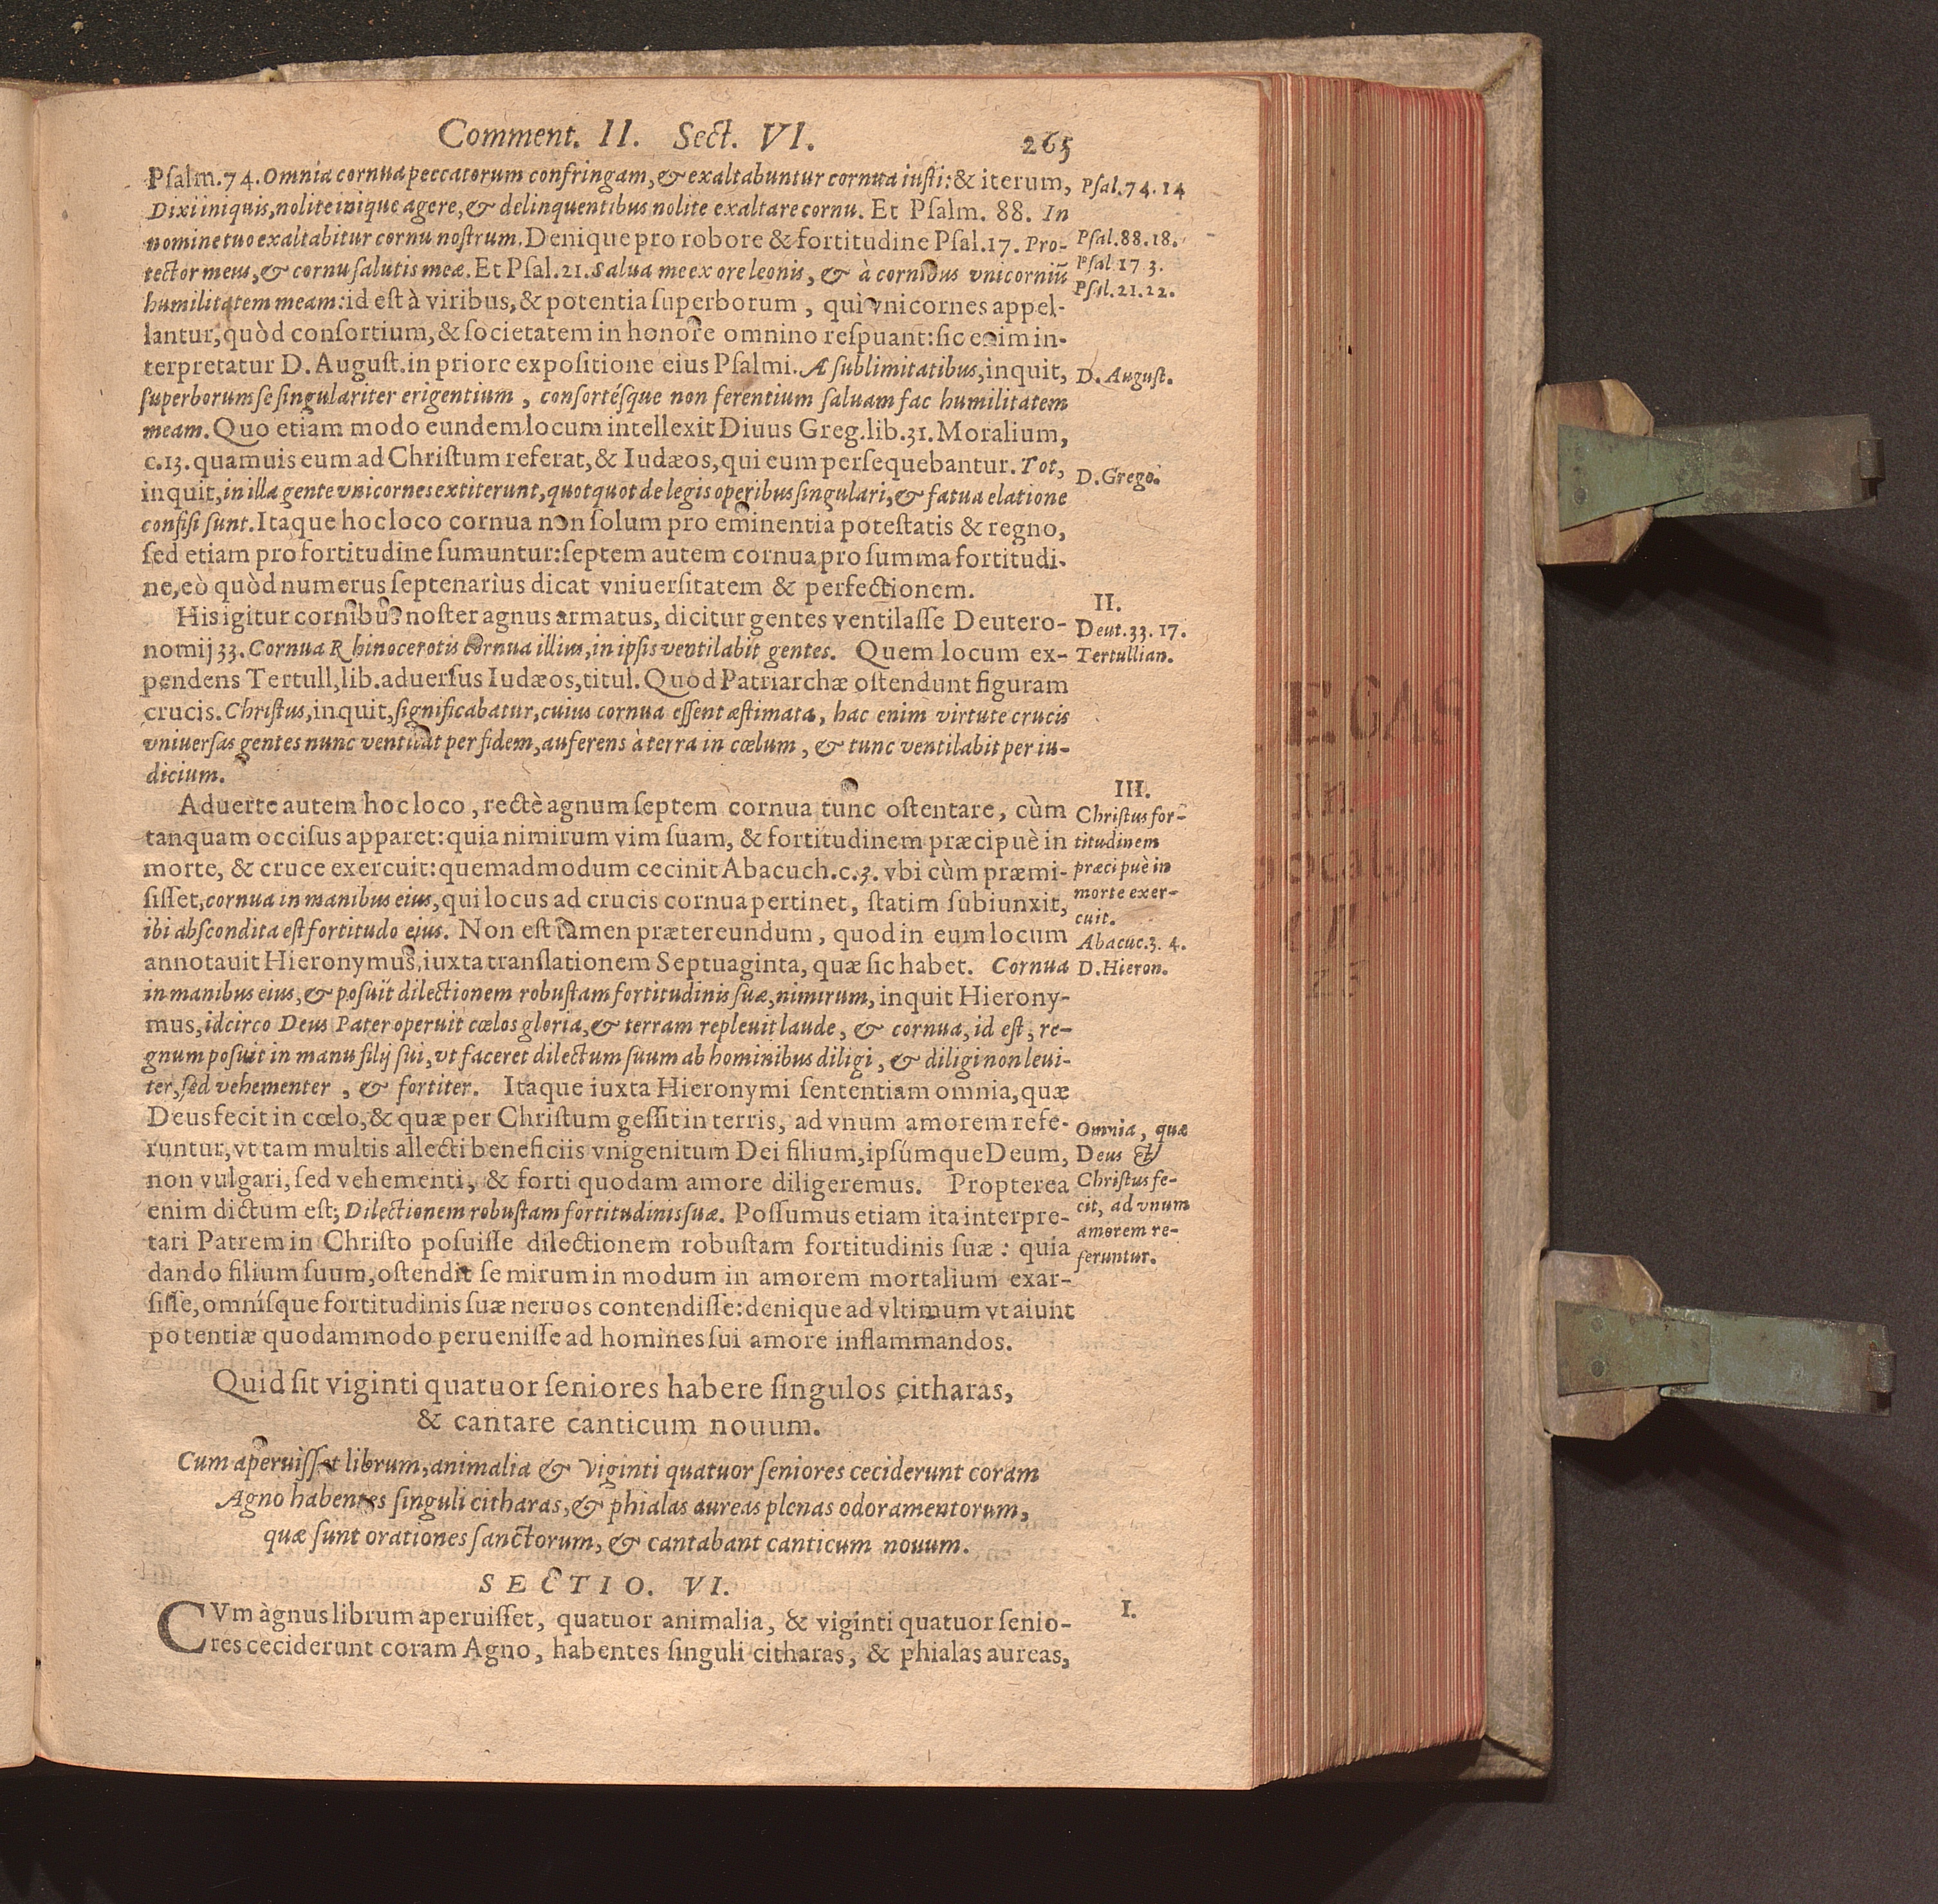 Comment. II. Sect. VI. 265
Pſalm.74. Omnia cornua peccatorum confringam, & exaltabuntur cornua iuſti: & iterum,
Dixi iniquis, nolite inique agere, & delinquentibus nolite exaltare cornu. Et Pſalm. 88. In
nomine tuo exaltabitur cornu noſtrum. Denique pro robore & fortitudine Pſal.17. Pro-
tector meus, & cornu ſalutis meæ. Et Pſal.21. Salua me ex ore leonis, & à cornibus vnicorniū
humilitatem meam: id eſt à viribus, & potentia ſuperborum, qui vnicornes appel-
lantur, quòd conſortium, & ſocietatem in honore omnino reſpuant: ſic enim in-
terpretatur D. Auguſt. in priore expoſitione eius Pſalmi. Æ ſublimitatibus, inquit,
ſuperborum ſe ſingulariter erigentium, conſortéſque non ferentium ſaluam fac humilitatem
meam. Quo etiam modo eundem locum intellexit Diuus Greg. lib.31. Moralium,
c.13. quamuis eum ad Chriſtum referat, & Iudæos, qui eum perſequebantur. Tot,
inquit, in illa gente vnicornes extiterunt, quotquot de legis operibus ſingulari, & fatua elatione
confiſi ſunt. Itaque hoc loco cornua non ſolum pro eminentia poteſtatis & regno,
ſed etiam pro fortitudine ſumuntur: ſeptem autem cornua pro ſumma fortitudi-
ne, eò quòd numerus ſeptenarius dicat vniuerſitatem & perfectionem.
His igitur cornibus noſter agnus armatus, dicitur gentes ventilaſſe Deutero-
nomij 33. Cornua Rhinocerotis cornua illius, in ipſis ventilabit gentes. Quem locum ex-
pendens Tertull, lib. aduerſus Iudæos, titul. Quod Patriarchæ oſtendunt figuram
crucis. Chriſtus, inquit, ſignificabatur, cuius cornua eſſent æſtimata, hac enim virtute crucis
vniuerſas gentes nunc ventilat per fidem, auferens à terra in cœlum, & tunc ventilabit per iu-
dicium.
Aduerte autem hoc loco, rectè agnum ſeptem cornua tunc oſtentare, cùm
tanquam occiſus apparet: quia nimirum vim ſuam, & fortitudinem præcipuè in
morte, & cruce exercuit: quemadmodum cecinit Abacuch. c.3. vbi cùm præmi-
ſiſſet, cornua in manibus eius, qui locus ad crucis cornua pertinet, ſtatim ſubiunxit,
ibi abſcondita eſt fortitudo ejus. Non eſt tamen prætereundum, quod in eum locum
annotauit Hieronymus, iuxta tranſlationem Septuaginta, quæ ſic habet. Cornua
in manibus eius, & poſuit dilectionem robuſtam fortitudinis ſuæ, nimirum, inquit Hierony-
mus, idcirco Deus Pater operuit cœlos gloria, & terram repleuit laude, & cornua, id eſt, re-
gnum poſuit in manu filij ſui, vt faceret dilectum ſuum ab hominibus diligi, & diligi non leui-
ter, ſed vehementer, & fortiter. Itaque iuxta Hieronymi ſententiam omnia, quæ
Deus fecit in cœlo, & quæ per Chriſtum geſſit in terris, ad vnum amorem refe-
runtur, vt tam multis allecti beneficiis vnigenitum Dei filium, ipſúmque Deum,
non vulgari, ſed vehementi, & forti quodam amore diligeremus. Propterea
enim dictum eſt; Dilectionem robuſtam fortitudinis ſuæ. Poſſumus etiam ita interpre-
tari Patrem in Chriſto poſuiſſe dilectionem robuſtam fortitudinis ſuæ: quia
dando filium ſuum, oſtendit ſe mirum in modum in amorem mortalium exar-
ſiſſe, omníſque fortitudinis ſuæ neruos contendiſſe: denique ad vltimum vt aiunt
potentiæ quodammodo perueniſſe ad homines ſui amore inflammandos.
Quid ſit viginti quatuor ſeniores habere ſingulos citharas,
& cantare canticum nouum.
Cum aperuiſſet librum, animalia & viginti quatuor ſeniores ceciderunt coram
Agno habentes ſinguli citharas, & phialas aureas plenas odoramentorum,
quæ ſunt orationes ſanctorum, & cantabant canticum nouum.
SECTIO. VI.
CVm agnus librum aperuiſſet, quatuor animalia, & viginti quatuor ſenio-
res ceciderunt coram Agno, habentes ſinguli citharas, & phialas aureas,
Pſal.74.14
Pſal.88.18.
Pſal 17 3.
Pſal.21.22.
D. Auguſt.
D. Grego.
II.
Deut.33. 17.
Tertullian.
III.
Chriſtus for-
titudinem
præcipuè in
morte exer-
cuit.
Abacuc.3. 4.
D. Hieron.
Omnia, quæ
Deus &
Chriſtus fe-
cit, ad vnum
amorem re-
feruntur.
I.